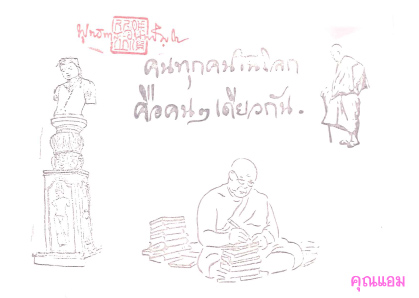 คนทุกคนในโลก
คือคน ๆ เดียวกัน.
คุณแอม